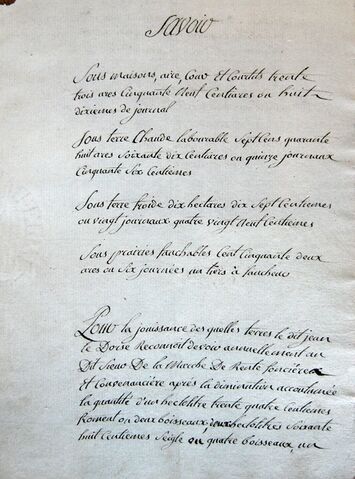 Savoir
Sous maisons, aire, Cour Et Courtils trente
trois ares Cinquante Neuf Centiares ou huit
dixiemes de journal
Sous terre Chaude labourable Sept Cens quarante
huit ares Soixante dix Centiares ou quinze journaux
Cinquante Six Centiemes
Sous terre froide dix hectares dix Sept Centiemes
ou vingt journaux quatre vingt Neuf Centiemes
Sous prairies fauchables Cent Cinquante deux
ares ou Six journées un tiers à faucheur
Pour la jouissance des quelles terres le dit jean
le Doise Reconnoit devoir annuellement au
Dit Sieur De la Marche De Rente foncière
Et Convenancière après la diminution accoutumée
la quantité d'un hectolitre trente quatre Centiemes
froment ou deux boisseaux, hectolitres Soixante
huit Centiemes Seigle ou quatre boisseaux, un